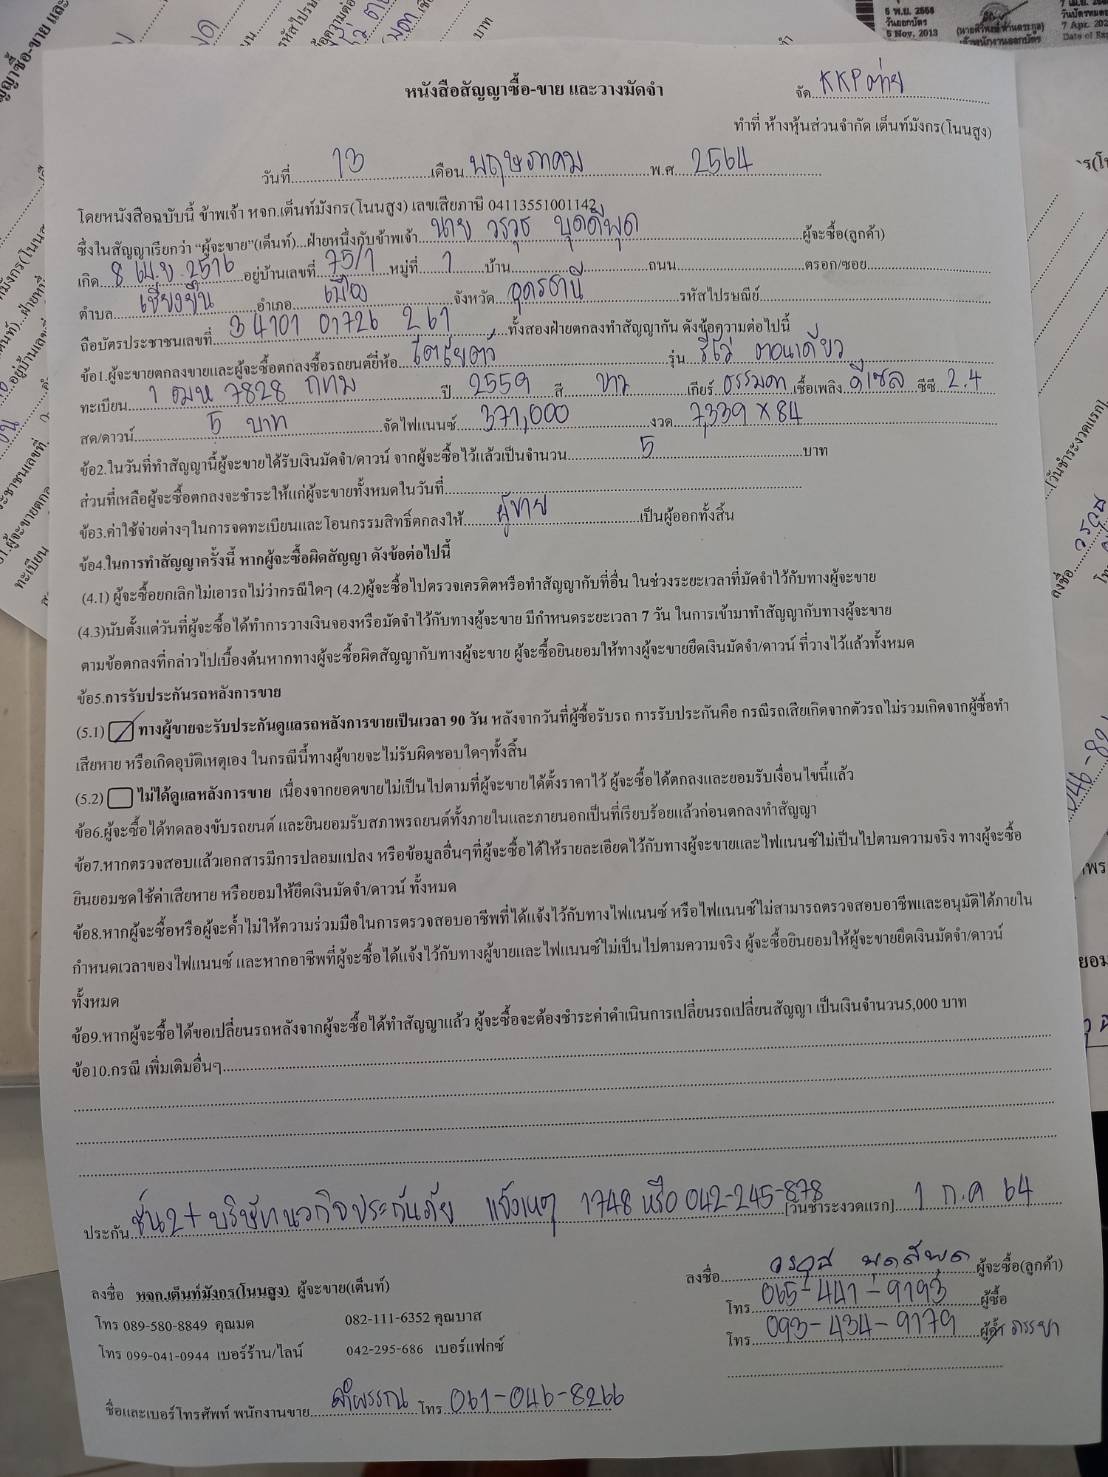 หนังสือสัญญาซื้อ-ขาย และวางมัดจำ
จัด KKP ท่าย
ทำที่ ห้างหุ้นส่วนจำกัด เต็นท์มังกร(โนนสูง)
วันที่ 13 เดือน พฤษภาคม พ.ศ. 2564
โดยหนังสือฉบับนี้ ข้าพเจ้า หจก.เต็นท์มังกร(โนนสูง) เลขเสียภาษี 04113551001142
ซึ่งในสัญญาเรียกว่า “ผู้จะขาย”(เต็นท์)...ฝ่ายหนึ่งกับข้าพเจ้า นาย วรวุธ บุดดีพุด ผู้จะซื้อ(ลูกค้า)
เกิด 8 เม.ย 2516 อยู่บ้านเลขที่ 75/1 หมู่ที่ 1 บ้าน ถนน ตรอก/ซอย
ตำบล เชียงยืน อำเภอ เมือง จังหวัด อุดรธานี รหัสไปรษณีย์
ถือบัตรประชาชนเลขที่ 3 4101 01726 26 1 ทั้งสองฝ่ายตกลงทำสัญญากัน ดังข้อความต่อไปนี้
ข้อ1.ผู้จะขายตกลงขายและผู้จะซื้อตกลงซื้อรถยนต์ยี่ห้อ โตโยต้า รุ่น รีโว่ ตอนเดียว
ทะเบียน 1 ฒห 7828 กทม ปี 2559 สี ขาว เกียร์ ธรรมดา เชื้อเพลิง ดีเซล ซีซี 2.4
สด/ดาวน์ 5 บาท จัดไฟแนนซ์ 371,000 งวด 7,339 x 84
ข้อ2.ในวันที่ทำสัญญานี้ผู้จะขายได้รับเงินมัดจำ/ดาวน์ จากผู้จะซื้อไว้แล้วเป็นจำนวน 5 บาท
ส่วนที่เหลือผู้จะซื้อตกลงจะชำระให้แก่ผู้จะขายทั้งหมดในวันที่
ข้อ3.ค่าใช้จ่ายต่างๆในการจดทะเบียนและโอนกรรมสิทธิ์ตกลงให้ ผู้ขาย เป็นผู้ออกทั้งสิ้น
ข้อ4.ในการทำสัญญาครั้งนี้ หากผู้จะซื้อผิดสัญญา ดังข้อต่อไปนี้
(4.1) ผู้จะซื้อยกเลิกไม่เอารถไม่ว่ากรณีใดๆ (4.2)ผู้จะซื้อไปตรวจเครดิตหรือทำสัญญากับที่อื่น ในช่วงระยะเวลาที่มัดจำไว้กับทางผู้จะขาย
(4.3)นับตั้งแต่วันที่ผู้จะซื้อได้ทำการวางเงินจองหรือมัดจำไว้กับทางผู้จะขาย มีกำหนดระยะเวลา 7 วัน ในการเข้ามาทำสัญญากับทางผู้จะขาย
ตามข้อตกลงที่กล่าวไปเบื้องต้นหากทางผู้จะซื้อผิดสัญญากับทางผู้จะขาย ผู้จะซื้อยินยอมให้ทางผู้จะขายยึดเงินมัดจำ/ดาวน์ ที่วางไว้แล้วทั้งหมด
ข้อ5.การรับประกันรถหลังการขาย
(5.1) ทางผู้ขายจะรับประกันดูแลรถหลังการขายเป็นเวลา 90 วัน หลังจากวันที่ผู้ซื้อรับรถ การรับประกันคือ กรณีรถเสียเกิดจากตัวรถไม่รวมเกิดจากผู้ซื้อทำ
เสียหาย หรือเกิดอุบัติเหตุเอง ในกรณีนี้ทางผู้ขายจะไม่รับผิดชอบใดๆทั้งสิ้น
(5.2) ไม่ได้ดูแลหลังการขาย เนื่องจากยอดขายไม่เป็นไปตามที่ผู้จะขายได้ตั้งราคาไว้ ผู้จะซื้อได้ตกลงและยอมรับเงื่อนไขนี้แล้ว
ข้อ6.ผู้จะซื้อได้ทดลองขับรถยนต์ และยินยอมรับสภาพรถยนต์ทั้งภายในและภายนอกเป็นที่เรียบร้อยแล้วก่อนตกลงทำสัญญา
ข้อ7.หากตรวจสอบแล้วเอกสารมีการปลอมแปลง หรือข้อมูลอื่นๆที่ผู้จะซื้อได้ให้รายละเอียดไว้กับทางผู้จะขายและไฟแนนซ์ไม่เป็นไปตามความจริง ทางผู้จะซื้อ
ยินยอมชดใช้ค่าเสียหาย หรือยอมให้ยึดเงินมัดจำ/ดาวน์ ทั้งหมด
ข้อ8.หากผู้จะซื้อหรือผู้จะค้ำไม่ให้ความร่วมมือในการตรวจสอบอาชีพที่ได้แจ้งไว้กับทางไฟแนนซ์ หรือไฟแนนซ์ไม่สามารถตรวจสอบอาชีพและอนุมัติได้ภายใน
กำหนดเวลาของไฟแนนซ์ และหากอาชีพที่ผู้จะซื้อได้แจ้งไว้กับทางผู้ขายและไฟแนนซ์ไม่เป็นไปตามความจริง ผู้จะซื้อยินยอมให้ผู้จะขายยึดเงินมัดจำ/ดาวน์
ทั้งหมด
ข้อ9.หากผู้จะซื้อได้ขอเปลี่ยนรถหลังจากผู้จะซื้อได้ทำสัญญาแล้ว ผู้จะซื้อจะต้องชำระค่าดำเนินการเปลี่ยนรถเปลี่ยนสัญญา เป็นเงินจำนวน5,000 บาท
ข้อ10.กรณี เพิ่มเติมอื่นๆ
ประกัน ชั้น2+ บริษัทนวกิจประกันภัย แจ้งเหตุ 1748 หรือ 042-245-878 [วันชำระงวดแรก] 1 ก.ค 64
ลงชื่อ หจก.เต็นท์มังกร(โนนสูง) ผู้จะขาย(เต็นท์)
ลงชื่อ วรวุธ บุดดีพุด ผู้จะซื้อ(ลูกค้า)
โทร 089-580-8849 คุณมด 082-111-6352 คุณบาส
โทร 065-441-9193 ผู้ซื้อ
โทร 099-041-0944 เบอร์ร้าน/ไลน์ 042-295-686 เบอร์แฟกซ์
โทร 093-434-9179 ภรรยา
ชื่อและเบอร์โทรศัพท์ พนักงานขาย คำพรรณ โทร 061-046-8266